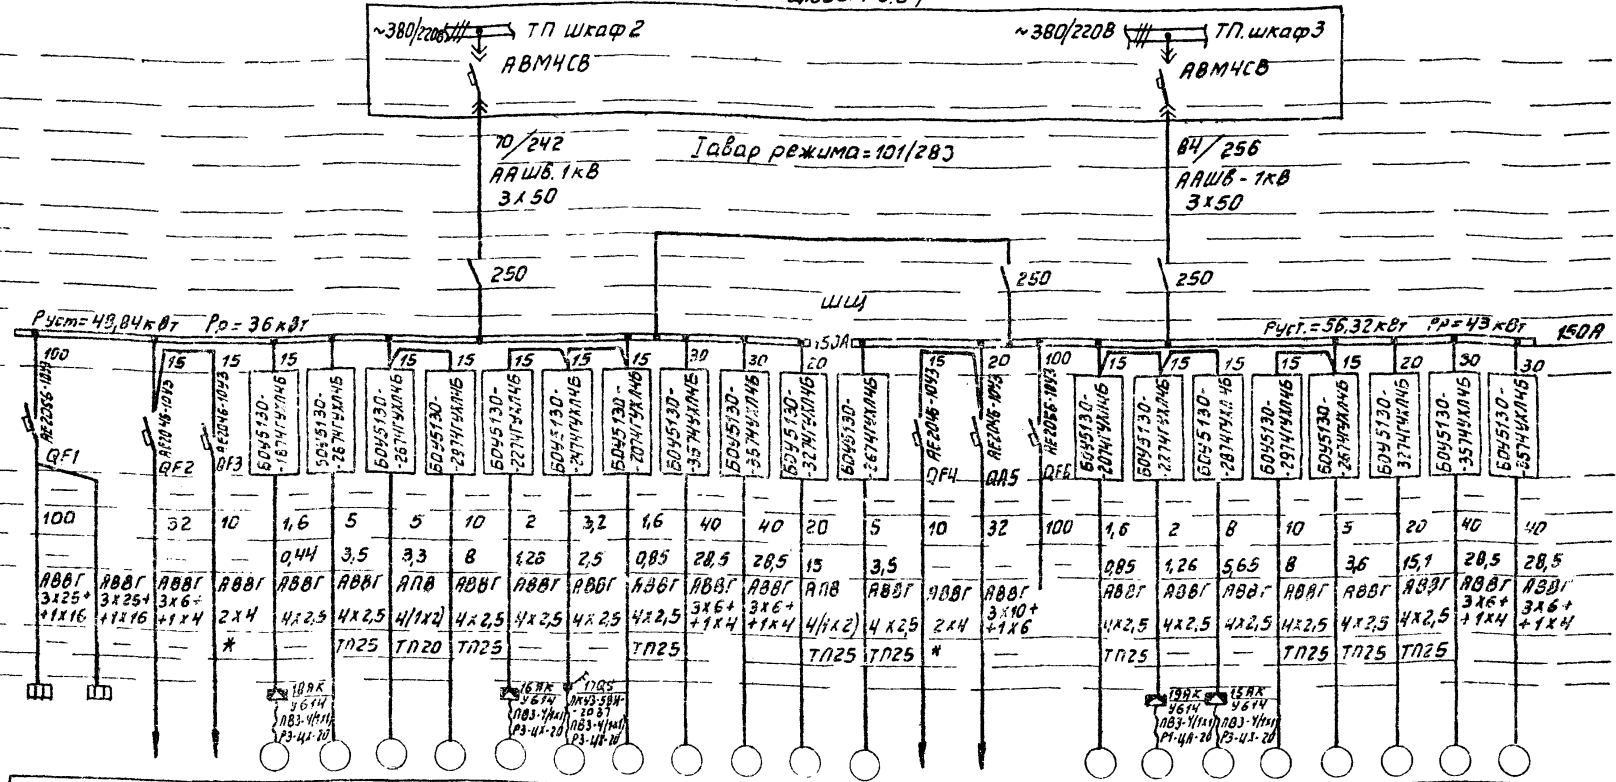 ~380/220В ТП шкаф 2
АВМ4СВ
~380/220В ТП. шкаф 3
АВМ4СВ
70/242
ААШВ. 1кВ
3х50
Iавар режима = 101/283
84/256
ААШВ - 1кВ
3х50
250
250
250
ШЩ
Руст = 49,84 кВт Рр = 36 кВт
150А
Руст. = 56,32 кВт Рр = 43 кВт
150А
100 15 15 15 15 15 15 15 15 30 30 20 15 20 100 15 15 15 15 15 20 30 30
АЕ2056-10У3
QF1
АЕ2046-10У3
QF2
АЕ2046-10У3
QF3
БОУ5130-
-1874ГУХЛ4Б
БОУ5130-
-2674ГУХЛ4Б
БОУ5130-
-2674ГУХЛ4Б
БОУ5130-
-2974ГУХЛ4Б
БОУ5130-
-2274ГУХЛ4Б
БОУ5130-
-2474ГУХЛ4Б
БОУ5130-
-2074ГУХЛ4Б
БОУ5130-
-3574УХЛ4Б
БОУ5130-
-3574УХЛ4Б
БОУ5130-
-3274ГУХЛ4Б
БОУ5130-
-2674ГУХЛ4Б
АЕ2046-10У3
QF4
АЕ2046-10У3
QA5
АЕ2056-10У3
QF6
БОУ5130-
-2074ГУХЛ4Б
БОУ5130-
-2274ГУХЛ4Б
БОУ5130-
-2874УХЛ4Б
БОУ5130-
-2974УХЛ4Б
БОУ5130-
-2674ГУХЛ4Б
БОУ5130-
3274ГУХЛ4Б
БОУ5130-
-3574УХЛ4Б
БОУ5130-
-3574УХЛ4Б
100 32 10 1,6 5 5 10 2 3,2 1,6 40 40 20 5 10 32 100 1,6 2 8 10 5 20 40 40
0,44 3,5 3,3 8 1,26 2,5 0,85 28,5 28,5 15 3,5 0,85 1,26 5,65 8 3,6 15,1 28,5 28,5
АВВГ АВВГ АВВГ АВВГ АВВГ АВВГ АПВ АВВГ АВВГ АВВГ АВВГ АВВГ АВВГ АПВ АВВГ АВВГ АВВГ АВВГ АВВГ АВВГ АВВГ АВВГ АВВГ АВВГ АВВГ
3х25+ 3х25+ 3х6+ 3х6+ 3х6+ 3х10+ 3х6+ 3х6+
+1х16 +1х16 +1х4 2х4 4х2,5 4х2,5 4/1х2) 4х2,5 4х2,5 4х2,5 4х2,5 +1х4 +1х4 4/1х2) 4х2,5 2х4 +1х6 4х2,5 4х2,5 4х2,5 4х2,5 4х2,5 4х2,5 +1х4 +1х4
* ТП25 ТП20 ТП25 ТП25 ТП25 ТП25 * ТП25 ТП25 ТП25 ТП25
18АК
У614
ПВ3-4/1х1
РЗ-ЦХ-20
16АК
У614
ПВ3-4/1х1
РЗ-ЦХ-20
17QS
ПВ3-4/1х1
РЗ-ЦХ-20
19АК
У614
ПВ3-4/1х1
15АК
У614
ПВ3-4/1х1
РЗ-ЦХ-20